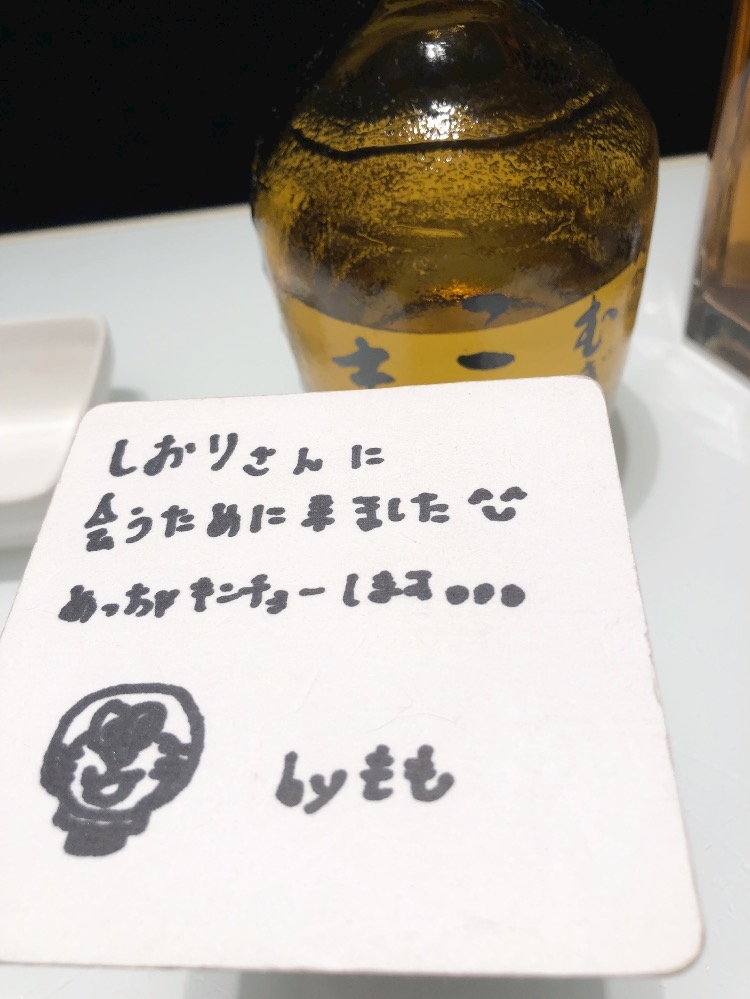 むぎ
しおりさんに
会うために来ました
めっちゃキンチョーします...
by もも